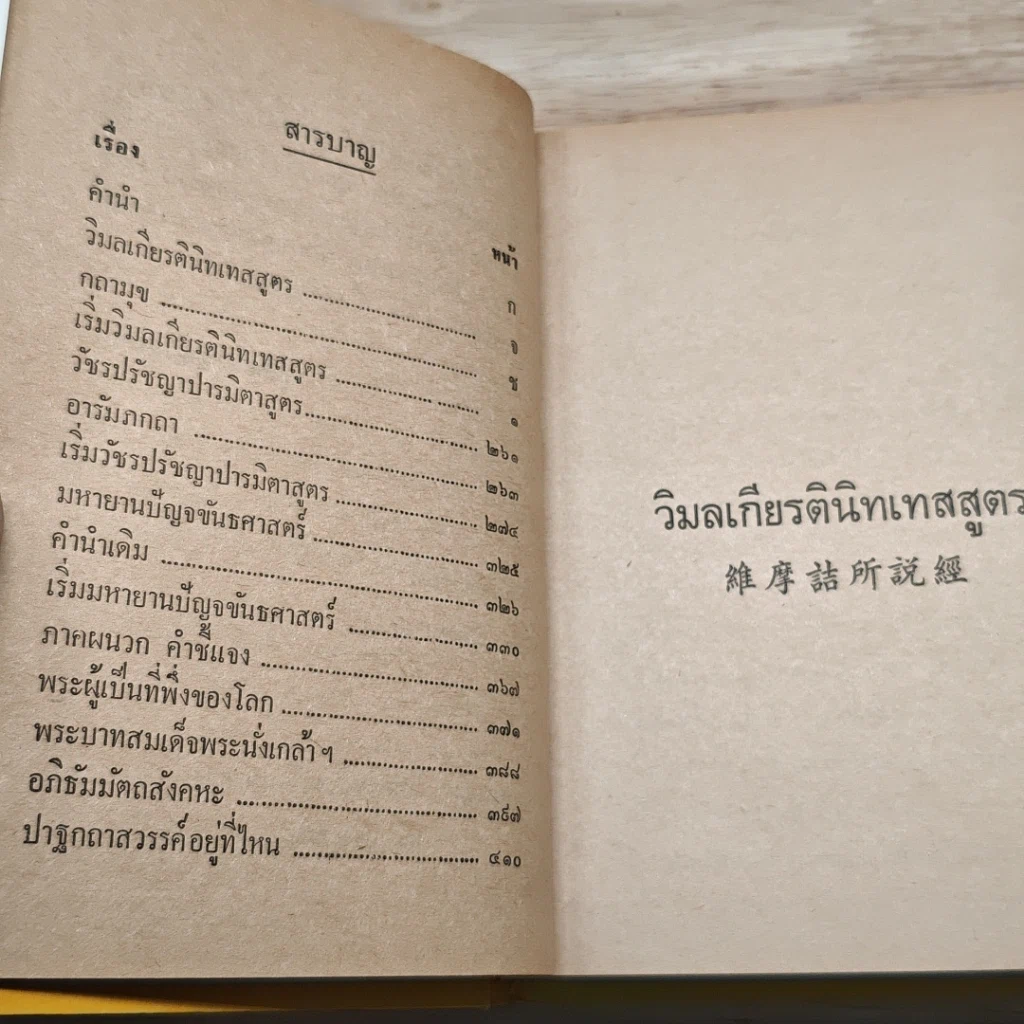 สารบาญ
เรื่อง หน้า
คำนำ ก
วิมลเกียรตินิทเทสสูตร ........................ จ
กถามุข ........................ ช
เริ่มวิมลเกียรตินิทเทสสูตร ........................ ๑
วัชรปรัชญาปารมิตาสูตร ........................ ๒๖๑
อารัมภกถา ........................ ๒๖๓
เริ่มวัชรปรัชญาปารมิตาสูตร ........................ ๒๗๔
มหายานปัญจขันธศาสตร์ ........................ ๓๒๕
คำนำเดิม ........................ ๓๒๖
เริ่มมหายานปัญจขันธศาสตร์ ........................ ๓๓๐
ภาคผนวก คำชี้แจง ........................ ๓๖๗
พระผู้เป็นที่พึ่งของโลก ........................ ๓๗๑
พระบาทสมเด็จพระนั่งเกล้าฯ ........................ ๓๘๘
อภิธัมมัตถสังคหะ ........................ ๓๙๗
ปาฐกถาสวรรค์อยู่ที่ไหน ........................ ๔๑๐
วิมลเกียรตินิทเทสสูตร
維摩詰所説經